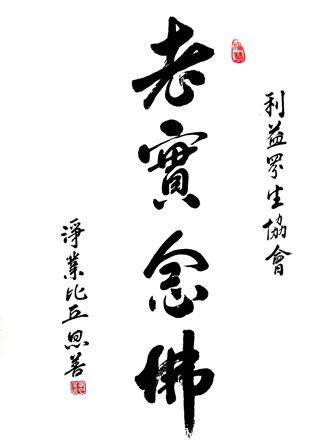 利益眾生協會
老實念佛
淨業比丘思善